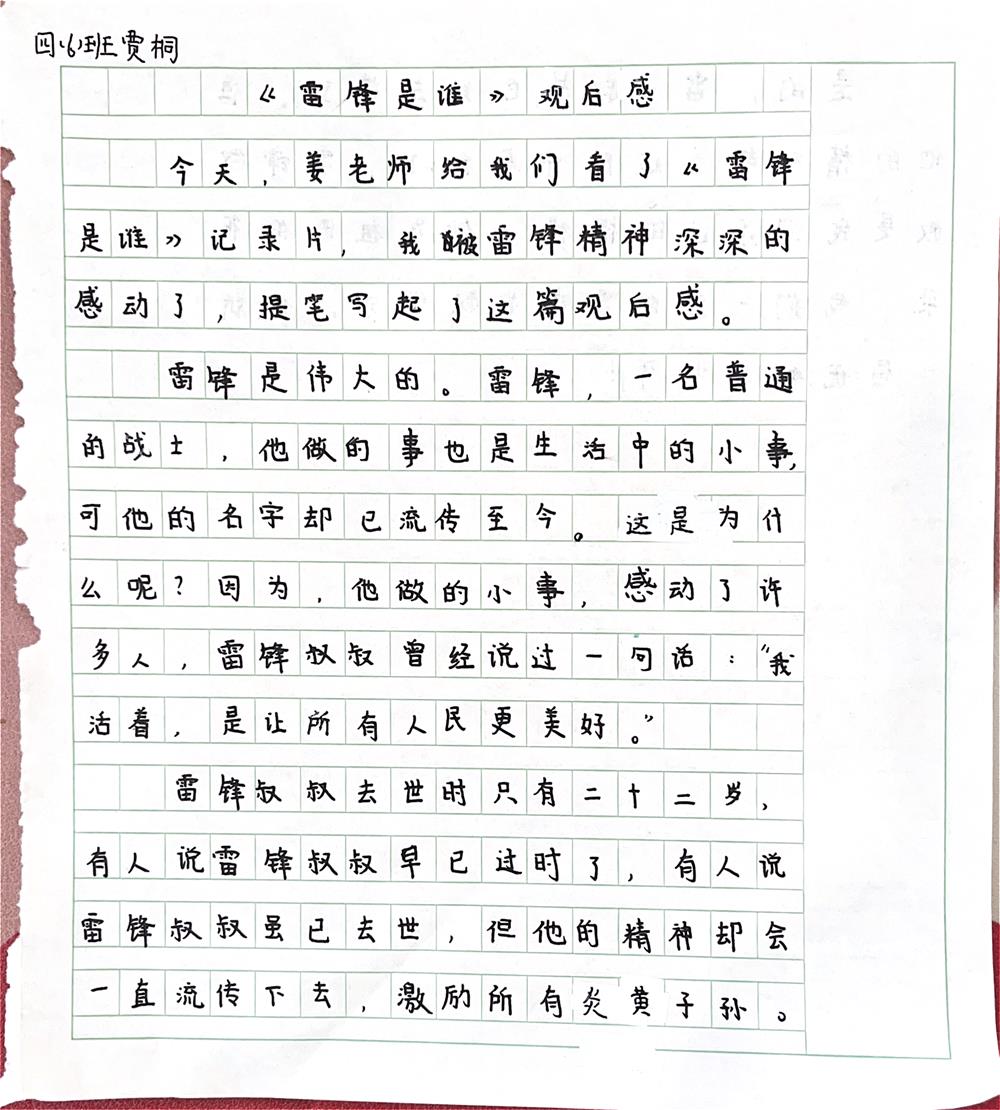 四(6)班贾桐
《雷锋是谁》观后感
今天，姜老师给我们看了《雷锋
是谁》记录片，我被雷锋精神深深的
感动了，提笔写起了这篇观后感。
雷锋是伟大的。雷锋，一名普通
的战士，他做的事也是生活中的小事，
可他的名字却已流传至今。这是为什
么呢？因为，他做的小事，感动了许
多人，雷锋叔叔曾经说过一句话：“我
活着，是让所有人民更美好。”
雷锋叔叔去世时只有二十二岁，
有人说雷锋叔叔早已过时了，有人说
雷锋叔叔虽已去世，但他的精神却会
一直流传下去，激励所有炎黄子孙。